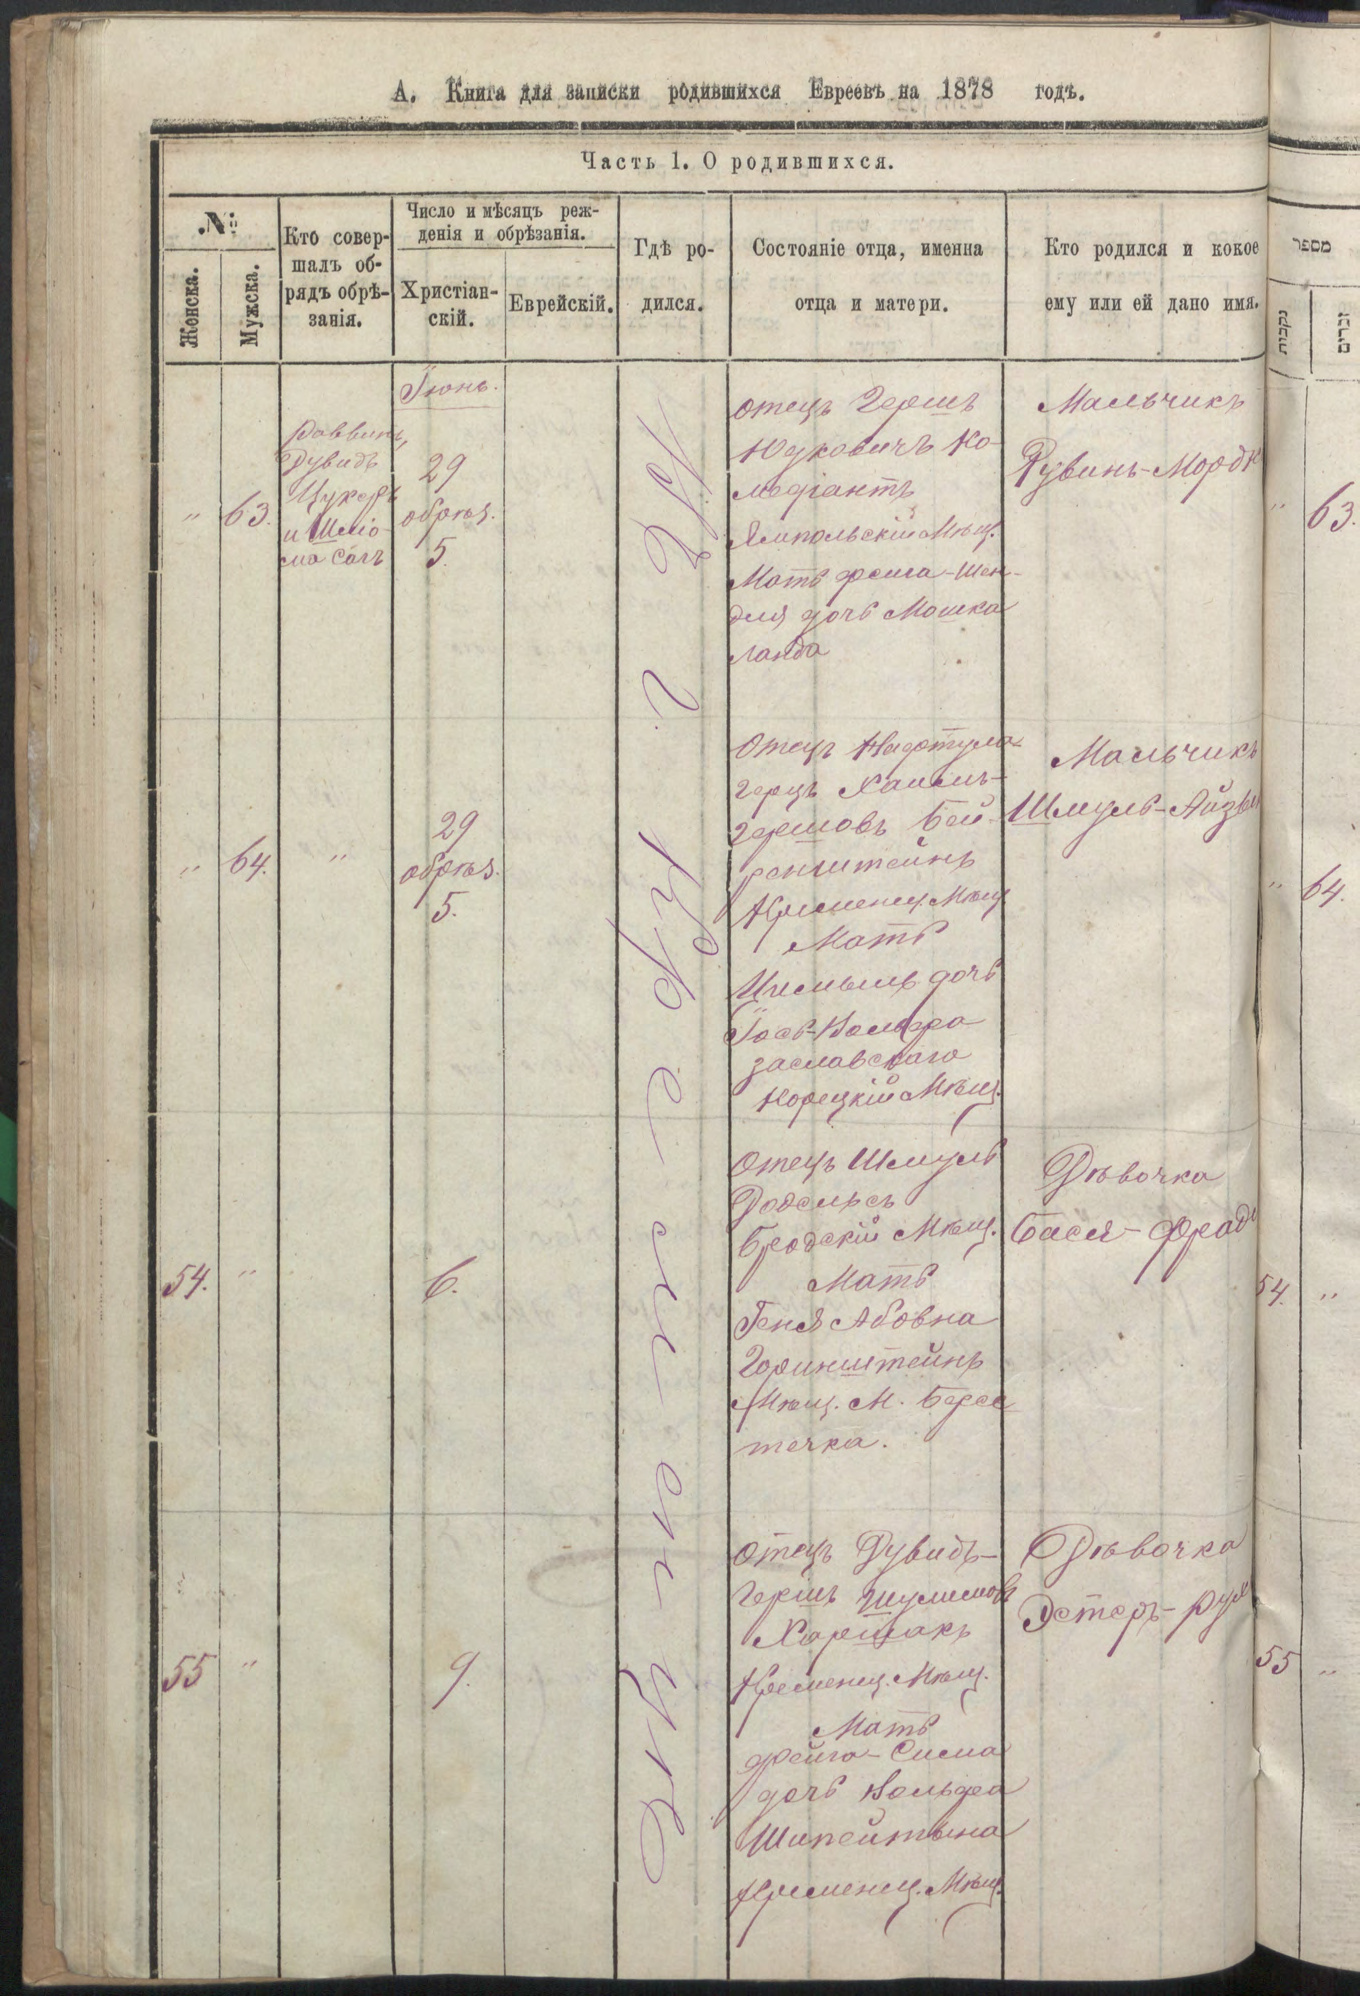 А. Книга для записки родившихся Евреевъ на 1878 годъ.
Часть 1. О родившихся.
№
Женска.
Мужска.
Кто совер-
шалъ об-
рядъ обрѣ-
занія.
Число и мѣсяцъ реж-
денія и обрѣзанія.
Христіан-
скій.
Еврейскій.
Гдѣ ро-
дился.
Состояніе отца, именна
отца и матери.
Кто родился и кокое
ему или ей дано имя.
מספר
נקבות
זכרים
„
63.
Раввинъ,
Дувидъ
Цукеръ
и Шліо-
ма
Іюнь.
29
обрѣз.
5.
Въ г. Кременцѣ
отецъ Гершъ
Юдковичъ Ко-
медіантъ
Ямпольскій Мѣщ.
Мать Фейга-Шен-
для дочь Мошка
Ланда
Мальчикъ
Рувинъ-Мордк
„
63.
„
64.
„
29
обрѣз.
5.
Отецъ Нафтула-
Герцъ Хаимъ-
Гершовъ Бей-
ренштейнъ
Кременец. Мѣщ
Мать
дочь
Іось-Вольфа
Заславскаго
Корецкій Мѣщ.
Мальчикъ
Шмуль-Айзы
„
64.
54.
„
6.
Отецъ Шмуль
Бродскій Мѣщ.
Мать
Геня Абовна
Горинштейнъ
Мѣщ. М. Берес
течка.
Дѣвочка
Бася-Фрад
54.
„
55
„
9.
Отецъ Дувидъ-
Гершъ Шулимовъ
Харшакъ
Кременец. Мѣщ.
Мать
Фейга-Сима
дочь Вольфа
Кременец. Мѣщ.
Дѣвочка
Эстеръ-Рух
55
„